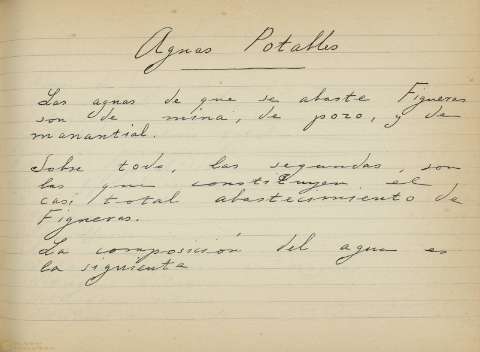 Aguas Potables
Las aguas de que se abaste Figueras
son de mina, de pozo, y de
manantial.
Sobre todo, las segundas, son
las que constituyen el
casi total abastecimiento de
Figueras.
La composición del agua es
la siguiente